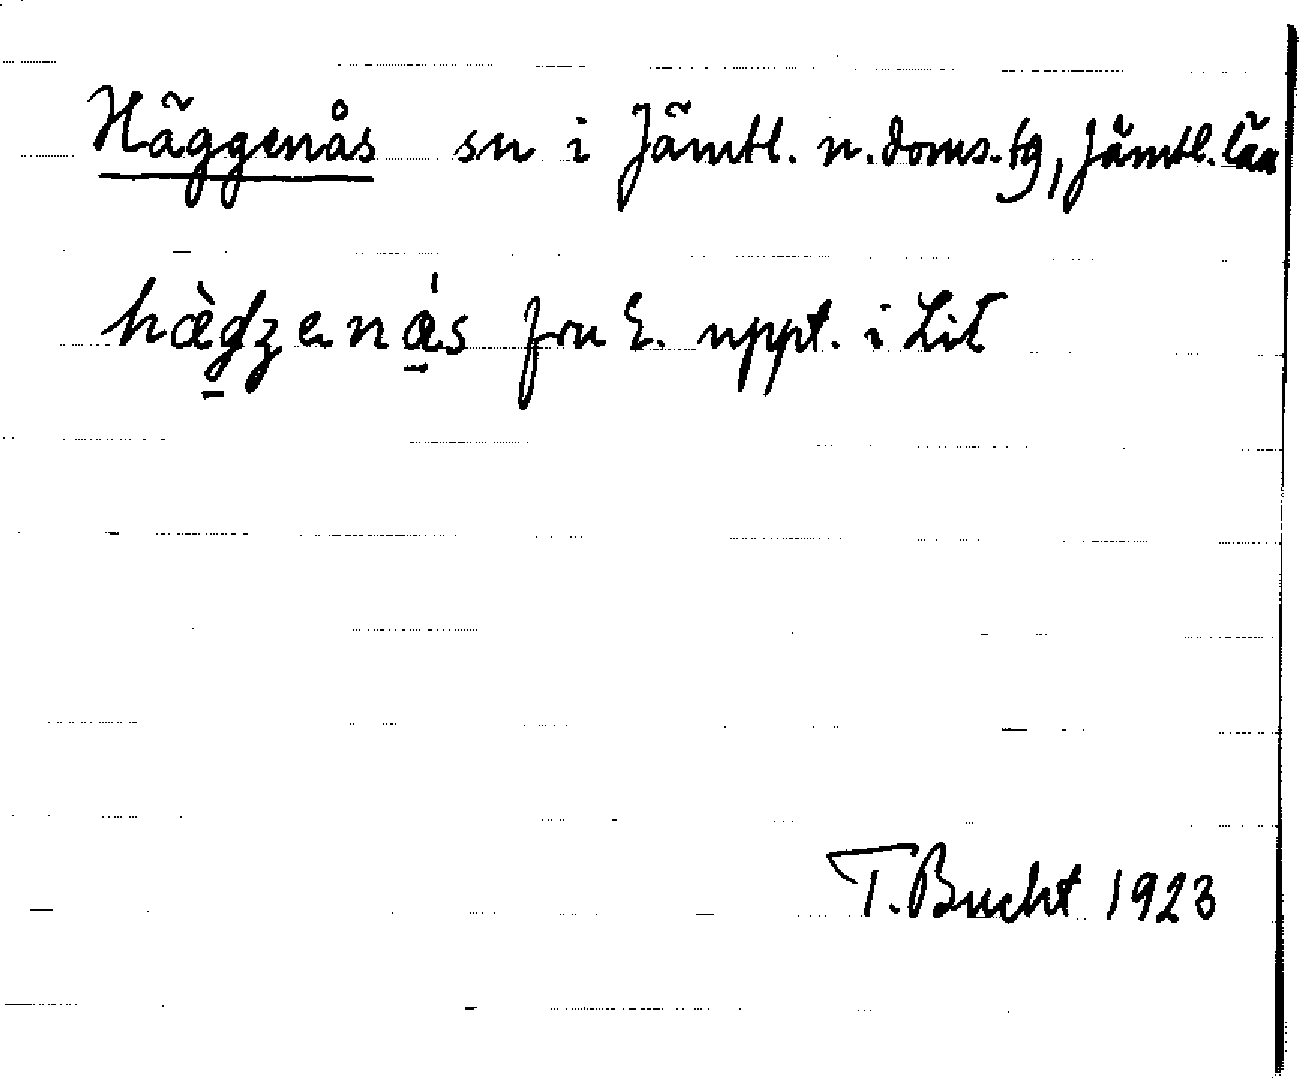 Häggenås sn i Jämtl. n. doms. tg, Jämtl. län
hæ̀gʒenás fru E. uppt. i Lit
T. Bucht 1923